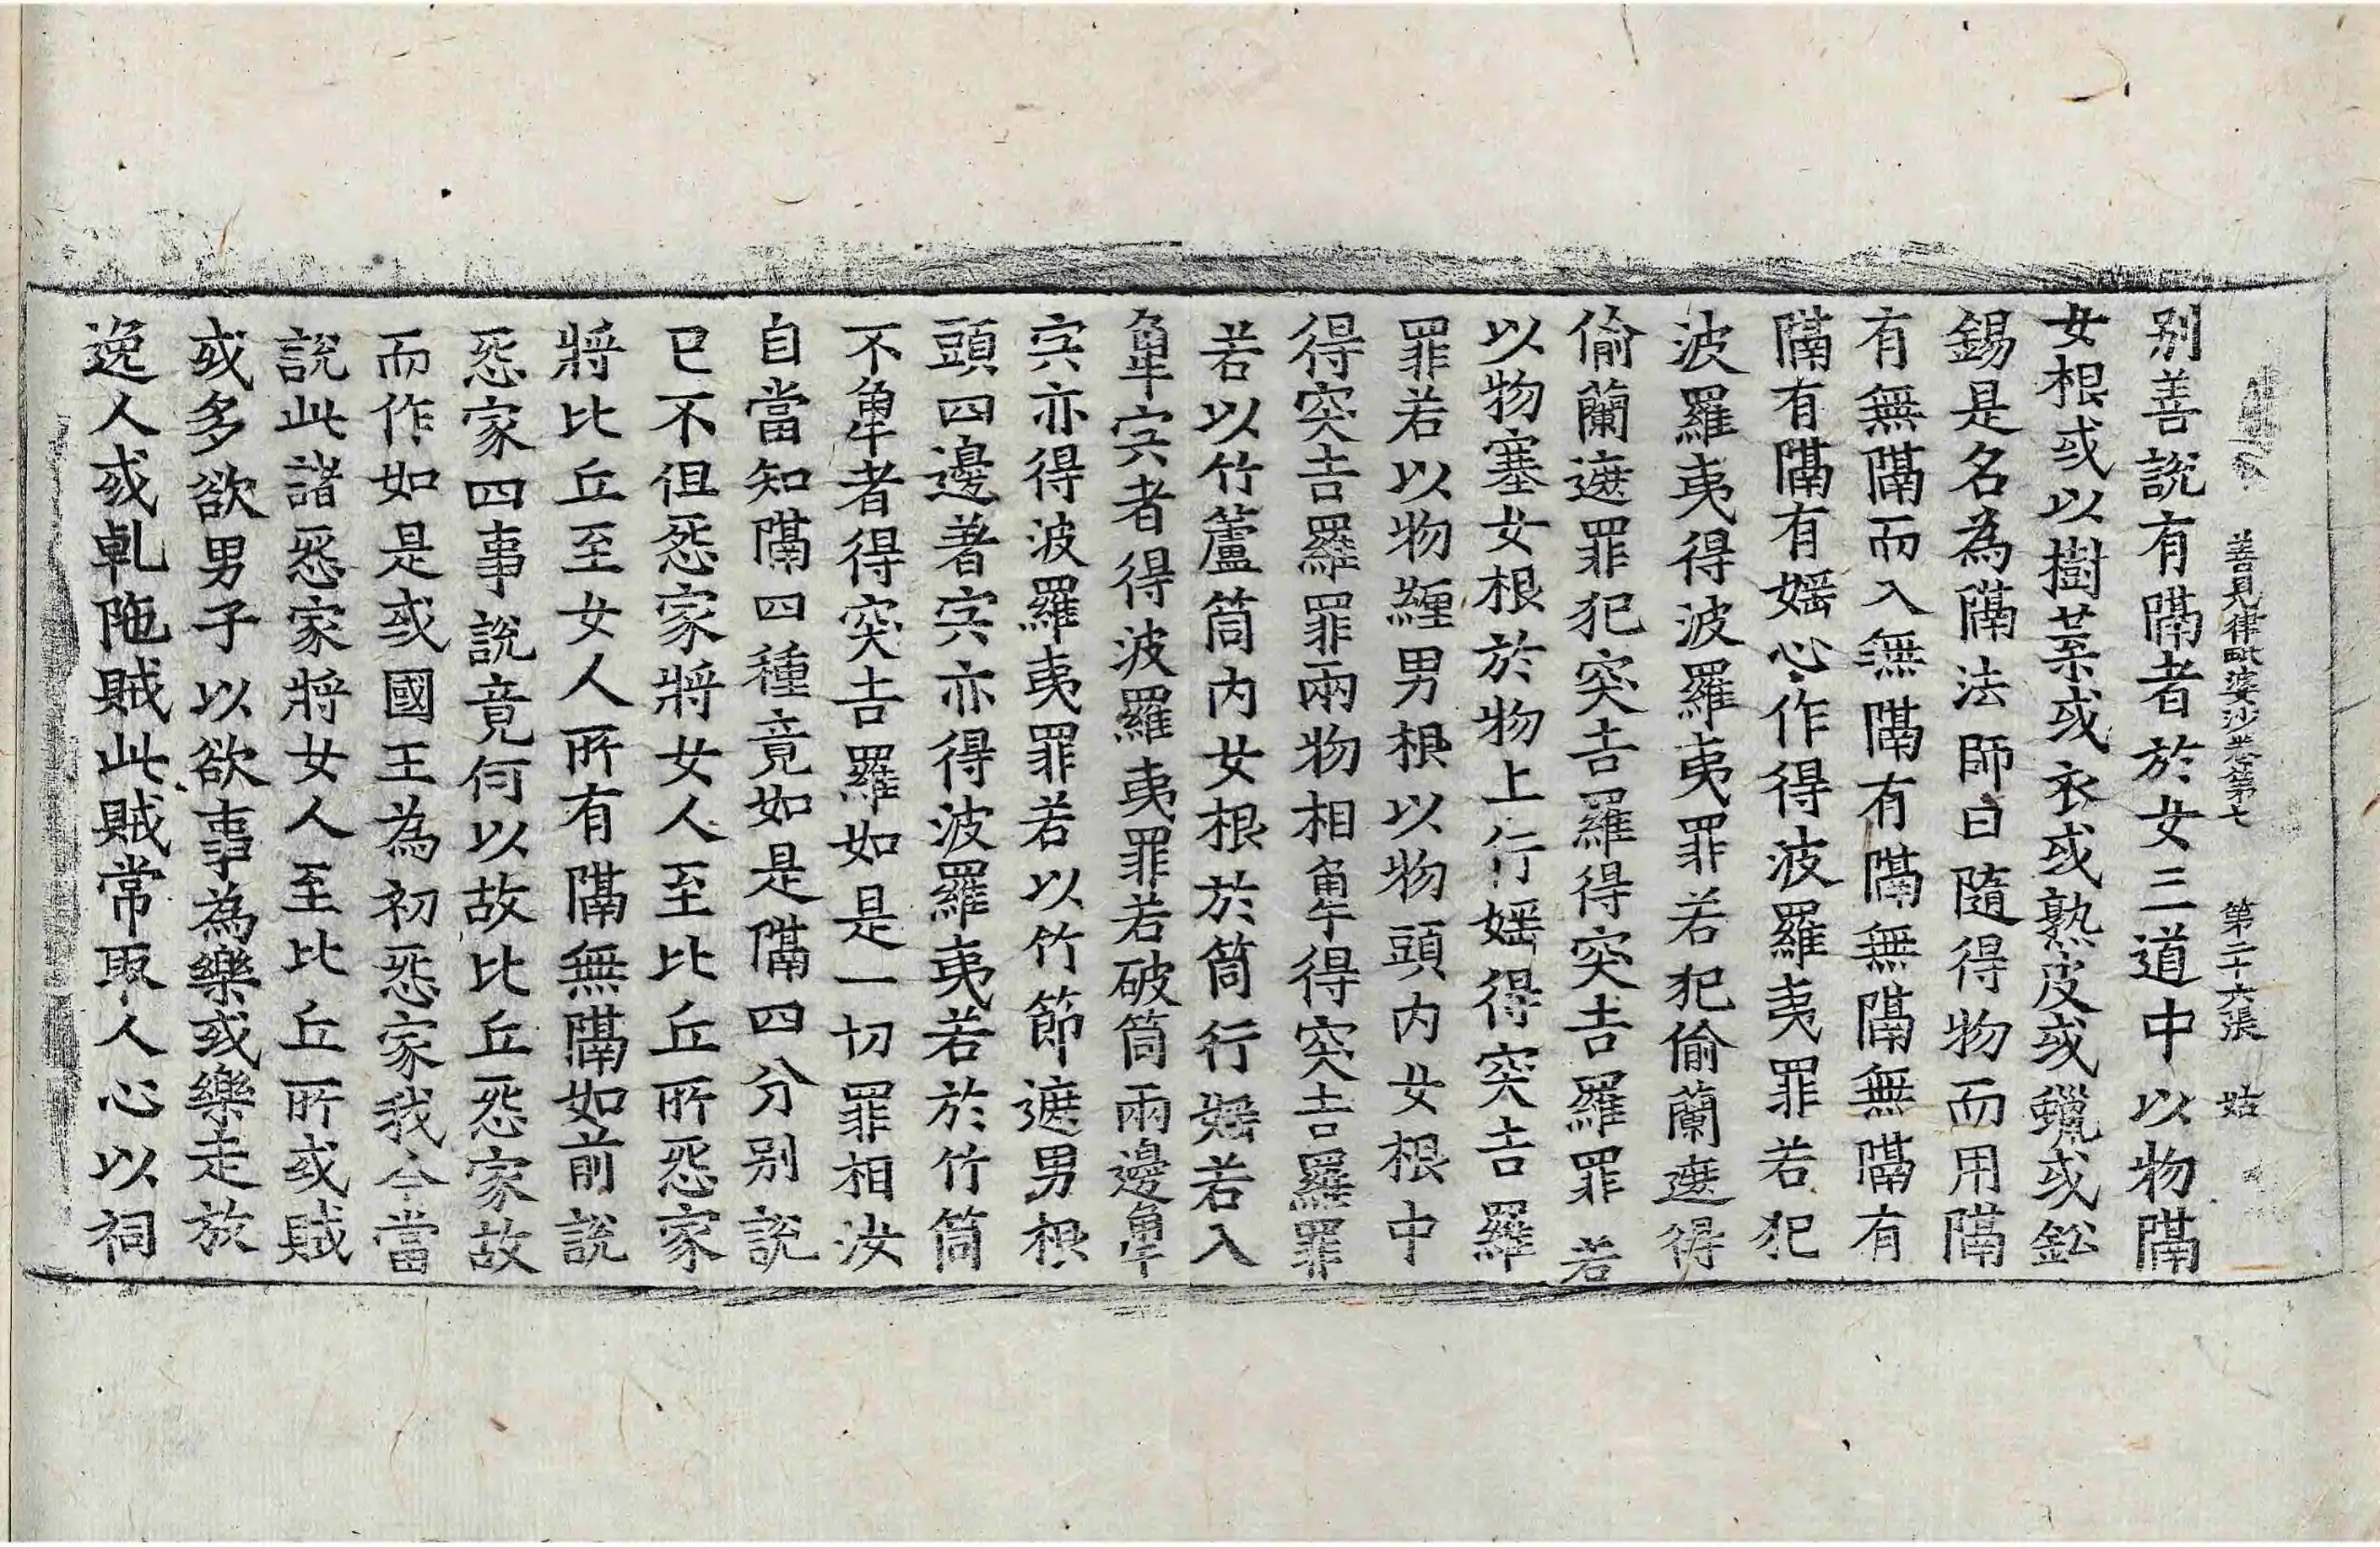 善見律毗婆沙卷第七 第二十六張 姑
别善說有隔者於女三道中以物隔
女根或以樹葉或衣或熟皮或蠟或鈆
錫是名為隔法師曰隨得物而用隔
有無隔而入無隔有隔無隔無隔有
隔有隔有婬心作得波羅夷罪若犯
波羅夷得波羅夷罪若犯偷蘭遮得
偷蘭遮罪犯突吉羅得突吉羅罪若
以物塞女根於物上行婬得突吉羅
罪若以物纏男根以物頭内女根中
得突吉羅罪兩物相觸得突吉羅罪
若以竹蘆筒内女根於筒行婬若入
觸宍者得波羅夷罪若破筒兩邊觸
宍亦得波羅夷罪若以竹節遮男根
頭四邊著宍亦得波羅夷若於竹筒
不觸者得突吉羅如是一切罪相汝
自當知隔四種竟如是隔四分别說
已不但怨家將女人至比丘所怨家
將比丘至女人所有隔無隔如前說
怨家四事說竟何以故比丘怨家故
而作如是或國王為初怨家我今當
說此諸怨家將女人至比丘所或賊
或多欲男子以欲事為樂或樂走放
逸人或乹陁賊此賊常取人心以祠